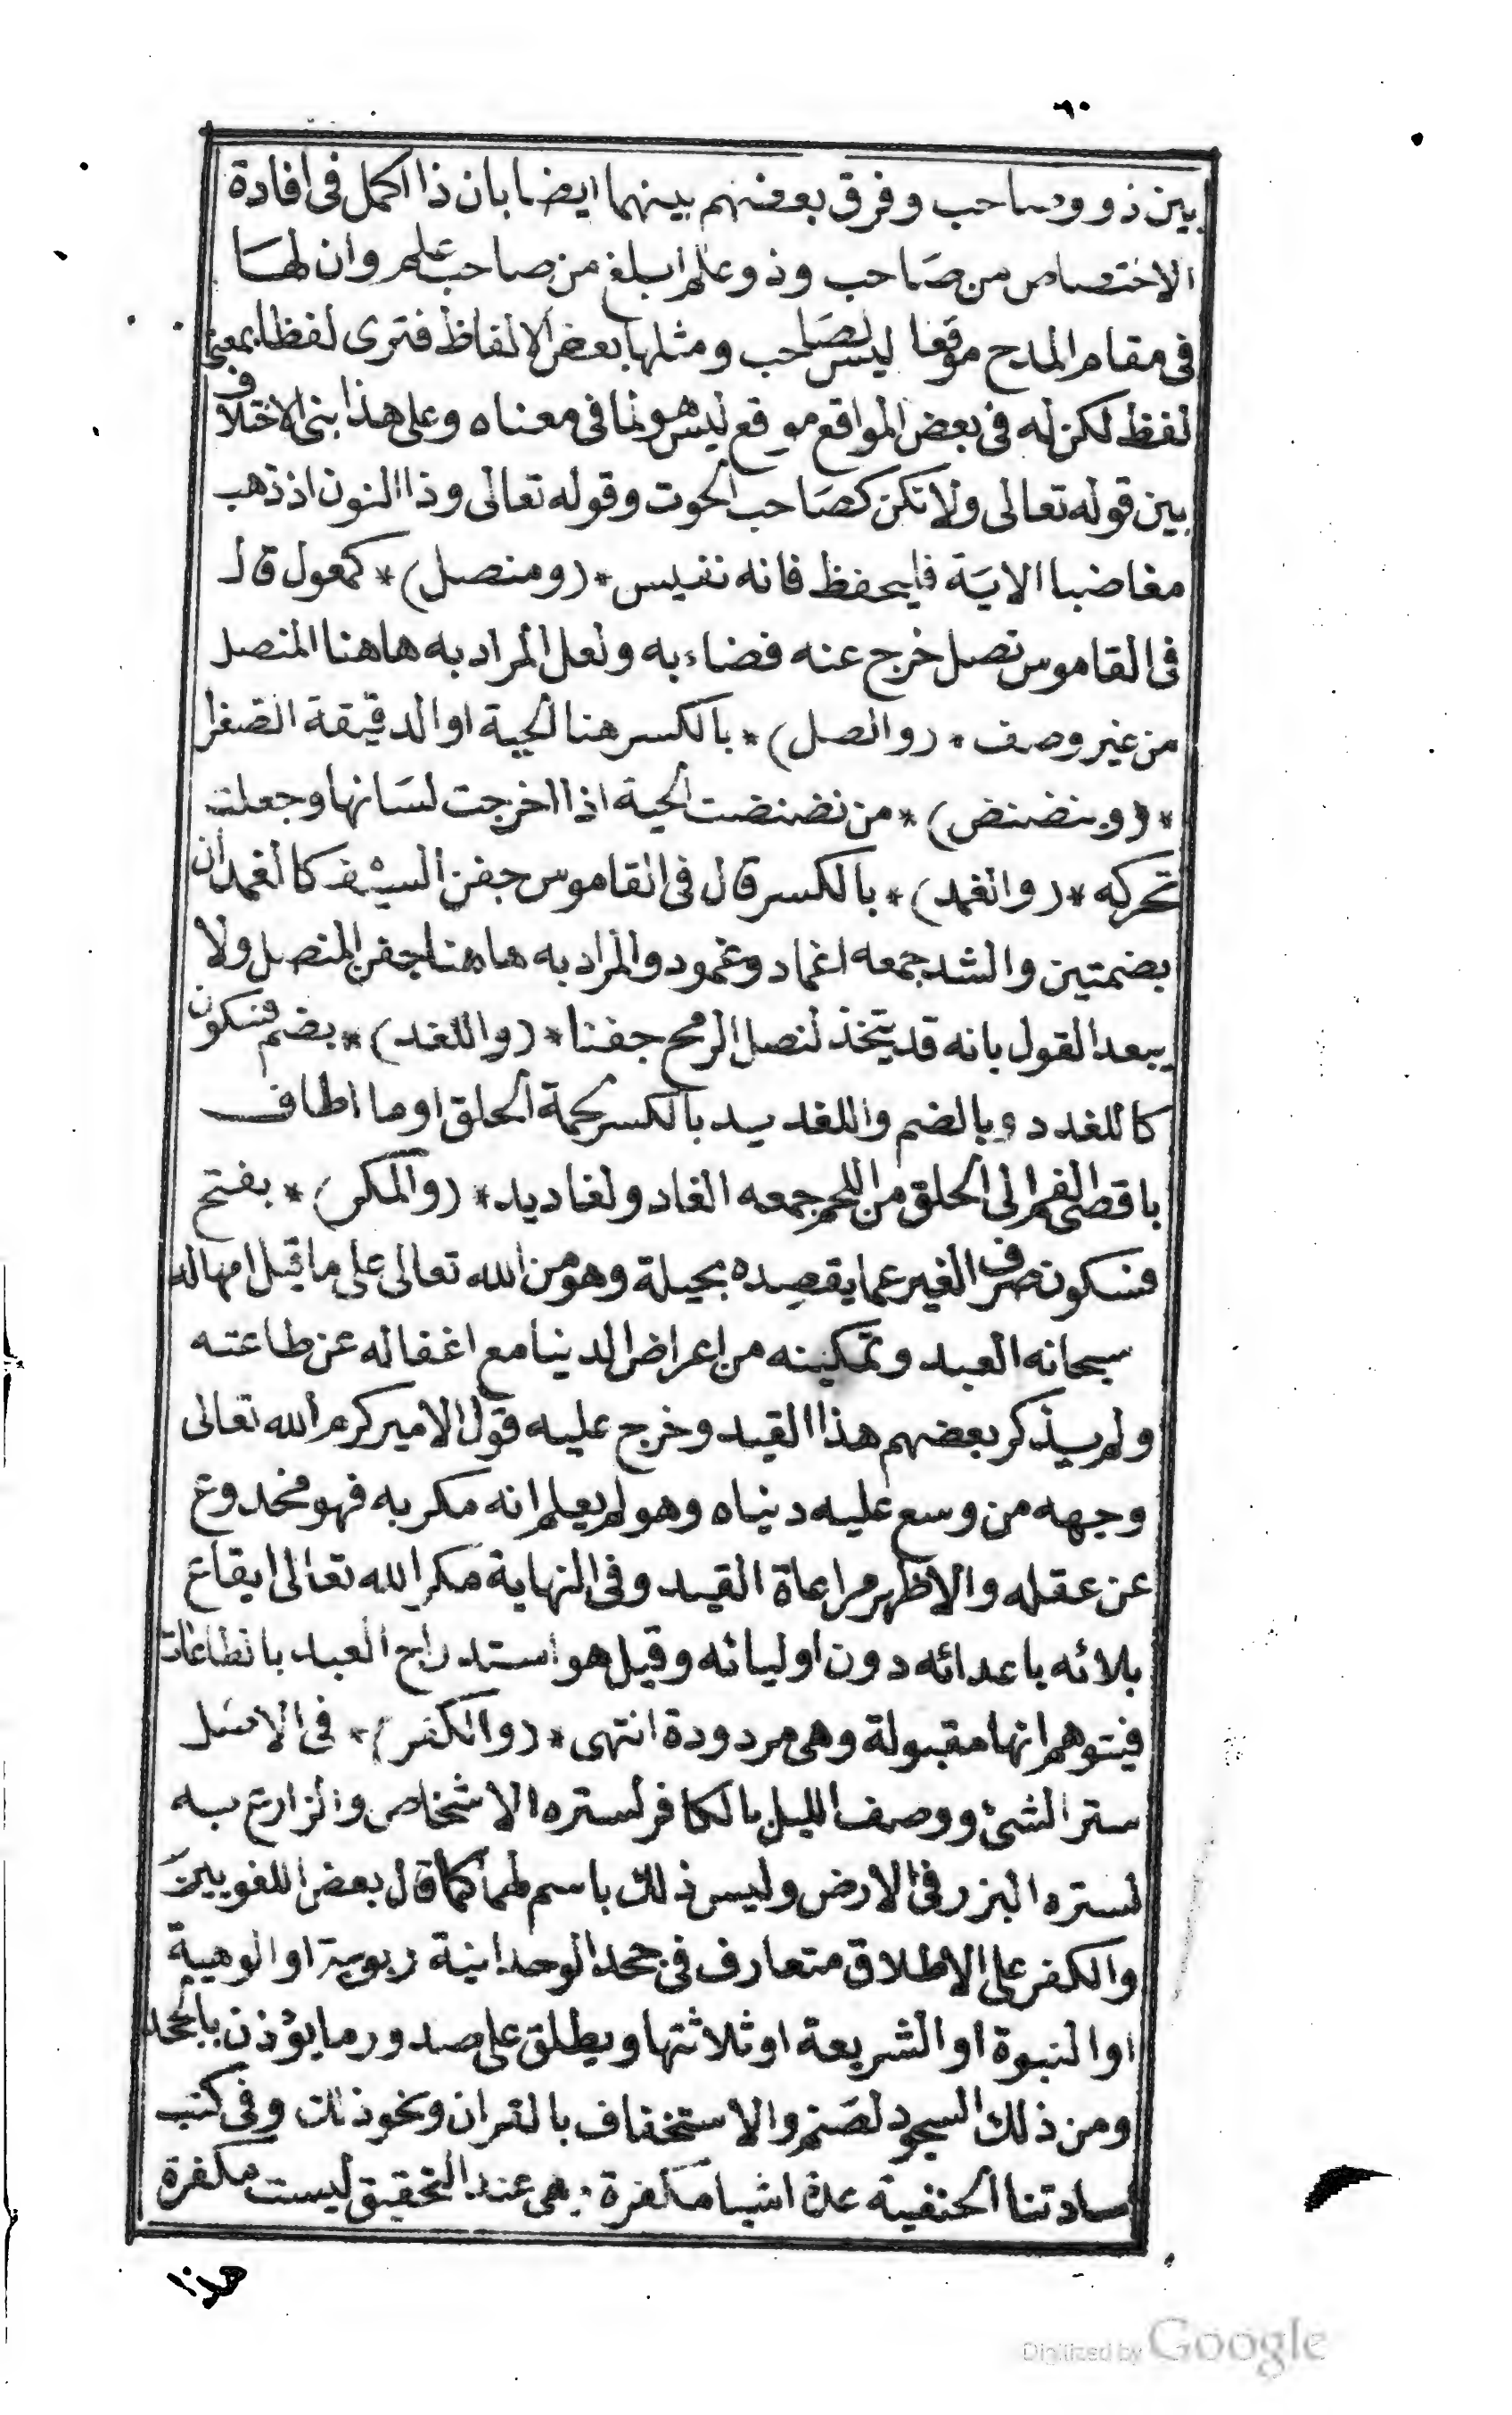 ٦٠
بين ذو وصاحب وفرق بعضهم بينهما ايضا بان ذا اكمل فى افادة
الاختصاص من صاحب وذو علم ابلغ من صاحب علم وان لها
فى مقام المدح موقعا ليس لصاحب ومثلها بعض الالفاظ فترى لفظا بمعنى
لفظ لكن له فى بعض المواقع موقع ليس هو لما فى معناه وعلى هذا بنى الاختلاف
بين قوله تعالى ولا تكن كصاحب الحوت وقوله تعالى وذا النون اذ ذهب
مغاضبا الاية فليحفظ فانه نفيس * (ومنصل) * كمعول قال
فى القاموس نصل خرج عنه فضاء به ولعل المراد به هاهنا المنصل
من غير وصف * (والصل) * بالكسر هنا الحية او الدقيقة الصفرا
* (وينضنض) * من نضنضت الحية اذا اخرجت لسانها وجعلت
تحركه * (والغمد) * بالكسر قال فى القاموس جفن السيف كالغمدان
بضمتين والشد جمعه اغماد وغمود والمراد به هاهنا جفن المنصل ولا
يبعد القول بانه قد يتخذ لنصل الرمح جفنا * (واللغد) * بضم فسكون
كاللغدد وبالضم واللغديد بالكسر لحمة الحلق او ما اطاف
باقصى الفم الى الحلق من اللحم جمعه الغاد ولغاديد * (والمكر) * بفتح
فسكون صرف الغير عما يقصده بحيلة وهو من الله تعالى على ما قيل امهاله
سبحانه العبد وتمكينه من اعراض الدنيا مع اغفاله عن طاعته
ولم يذكر بعضهم هذا القيد وخرج عليه قول الامير كرم الله تعالى
وجهه من وسع عليه دنياه وهو لم يعلم انه مكر به فهو مخدوع
عن عقله والاظهر مراعاة القيد وفى النهاية مكر الله تعالى ايقاع
بلائه باعدائه دون اوليائه وقيل هو استدراج العبد بالطاعات
فيتوهم انها مقبولة وهى مردودة انتهى * (والكفر) * فى الاصل
ستر الشئ ووصف الليل بالكافر لستره الاشخاص والزارع به
لستره البزر فى الارض وليس ذلك باسم لهما كما قال بعض اللغويين
والكفر على الاطلاق متعارف فى جحد الوحدانية ربوبية او الوهية
او النبوة او الشريعة او ثلاثتها ويطلق على صدور ما يؤذن بالجحد
ومن ذلك السجود لصنم والاستخفاف بالقران ونحو ذلك وفى كتب
سادتنا الحنفية عدة اشيا مكفرة وهى عند التحقيق ليست مكفرة
هذا
Digitized by Google